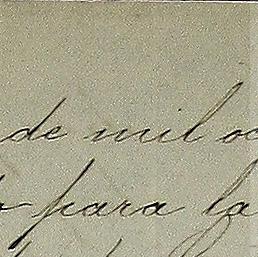 de mil oc
para la